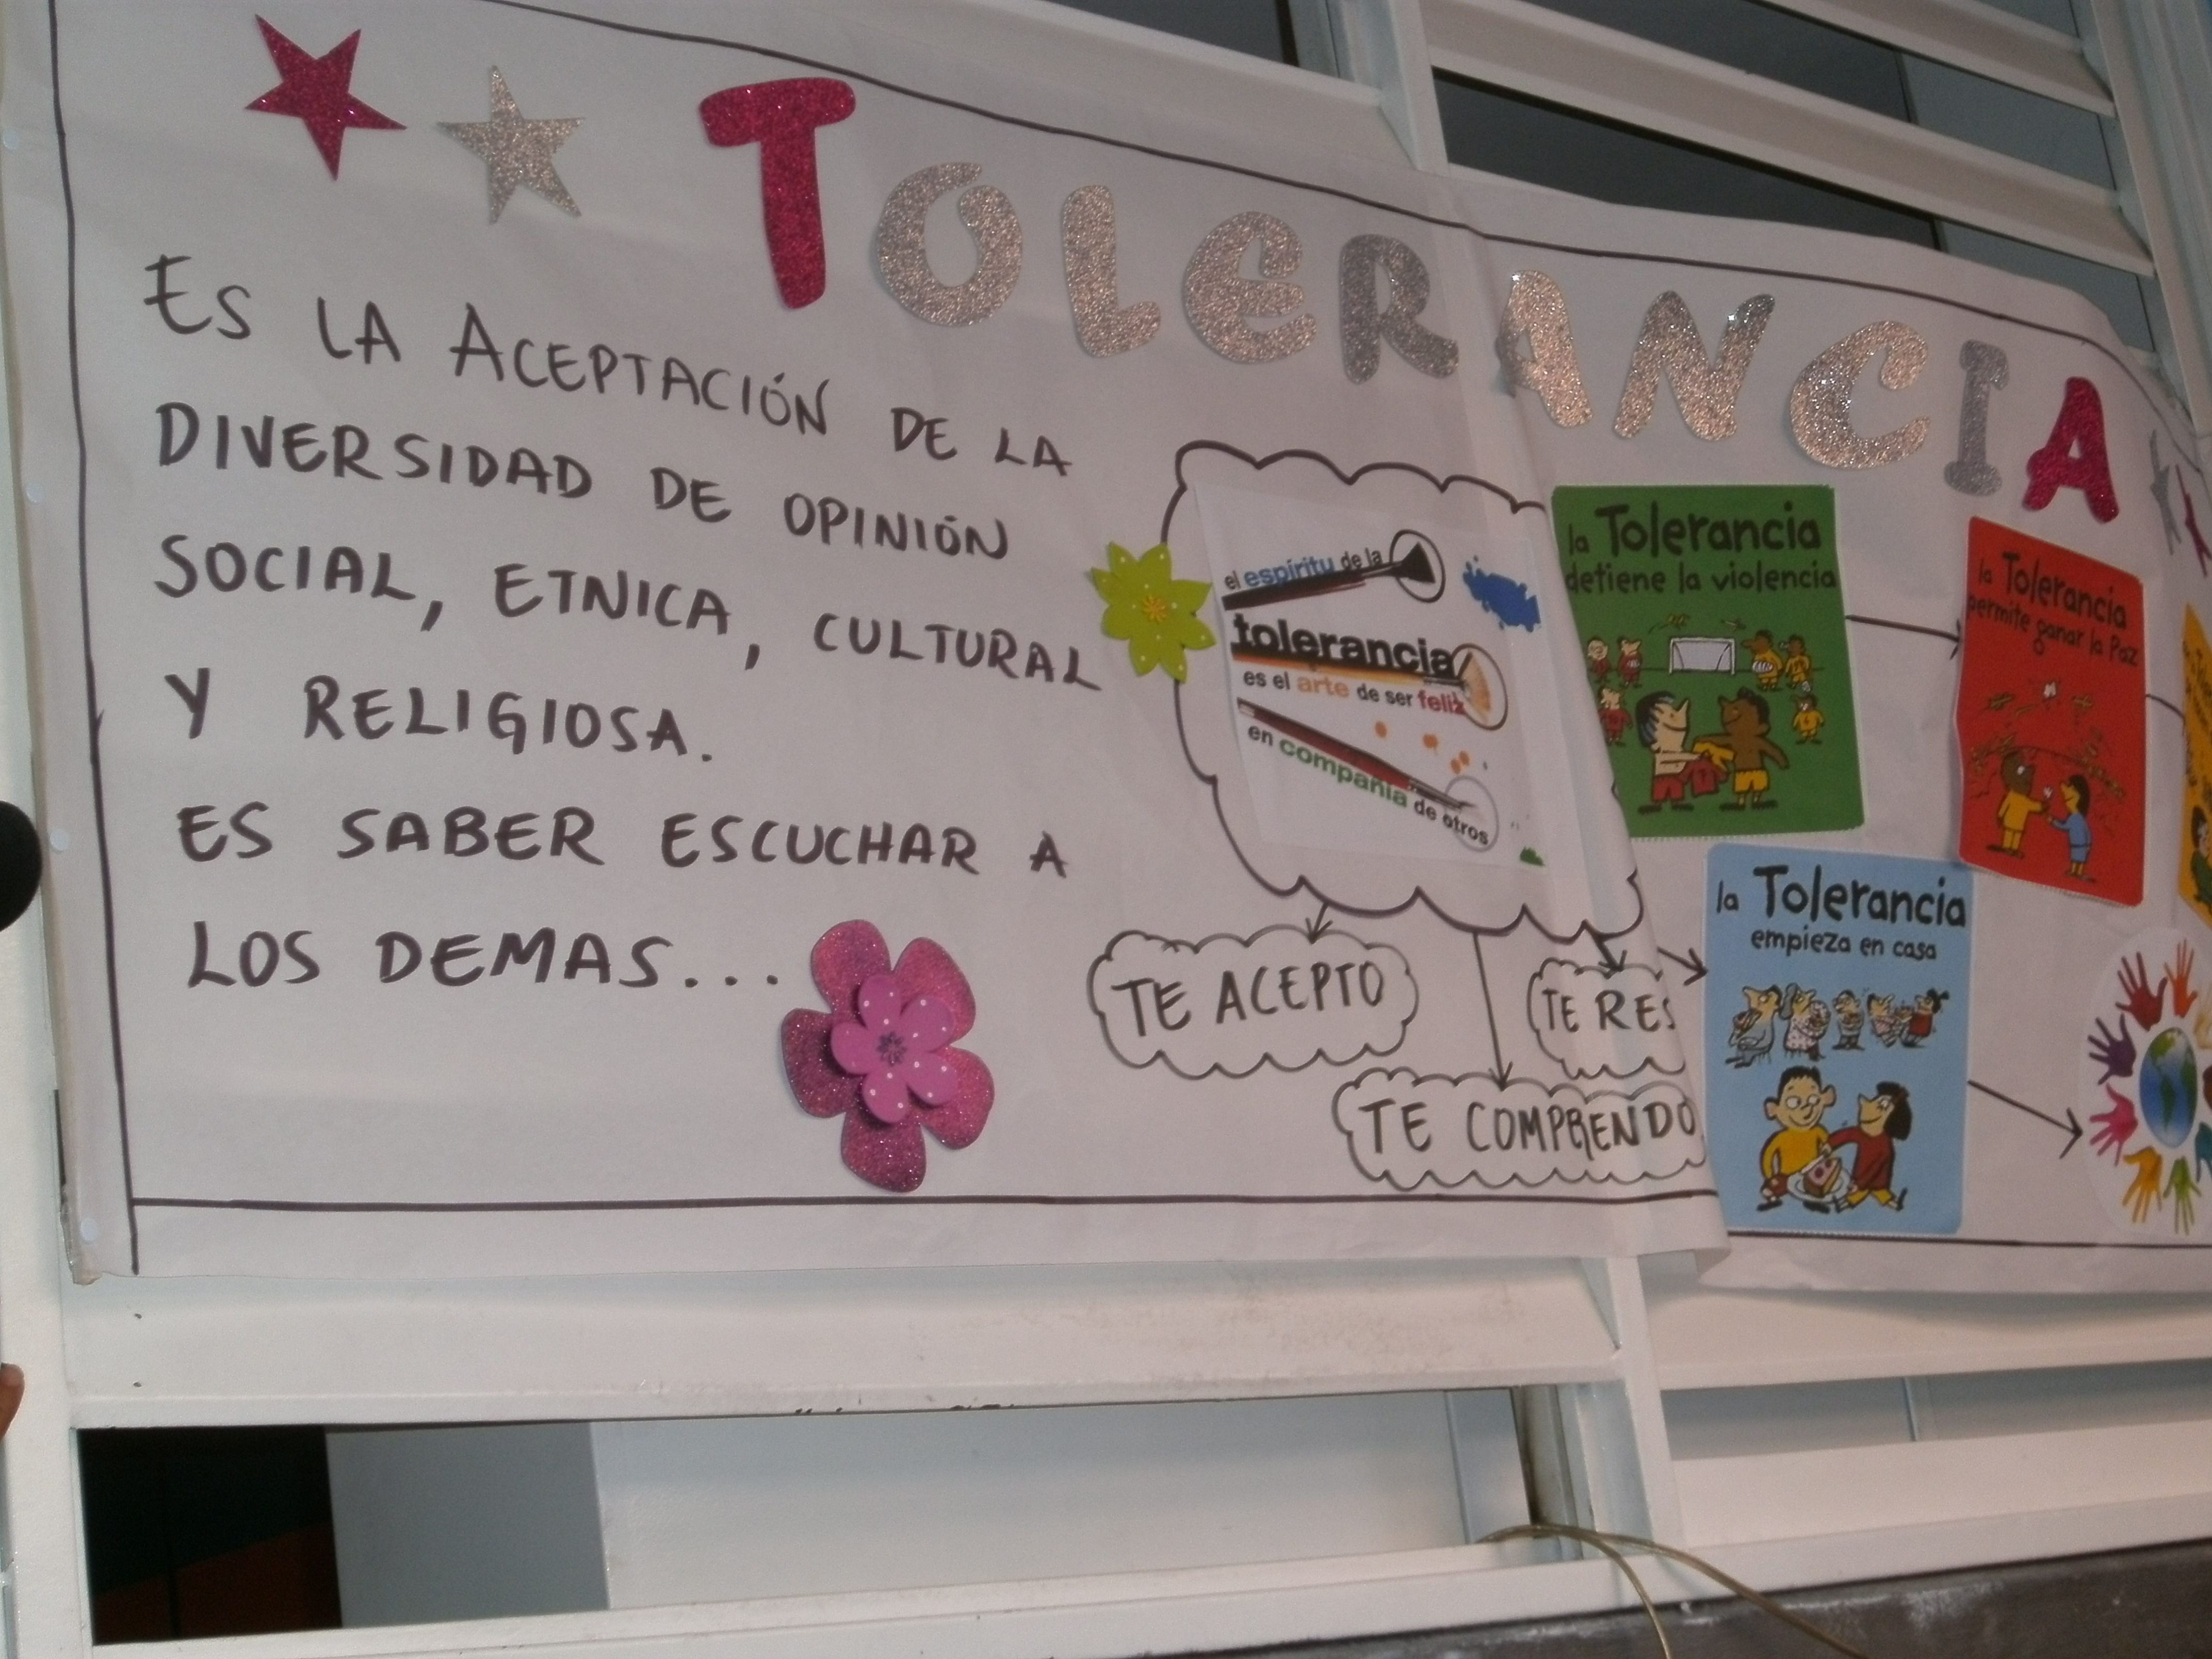 TOLERANCIA
ES LA ACEPTACIÓN DE LA
DIVERSIDAD DE OPINIÓN
SOCIAL, ETNICA, CULTURAL
Y RELIGIOSA.
ES SABER ESCUCHAR A
LOS DEMAS...
el espíritu de la
tolerancia
es el arte de ser feliz
en compañia de otros
TE ACEPTO
TE RES
TE COMPRENDO
la Tolerancia
detiene la violencia
la Tolerancia
permite ganar la Paz
la Tolerancia
empieza en casa